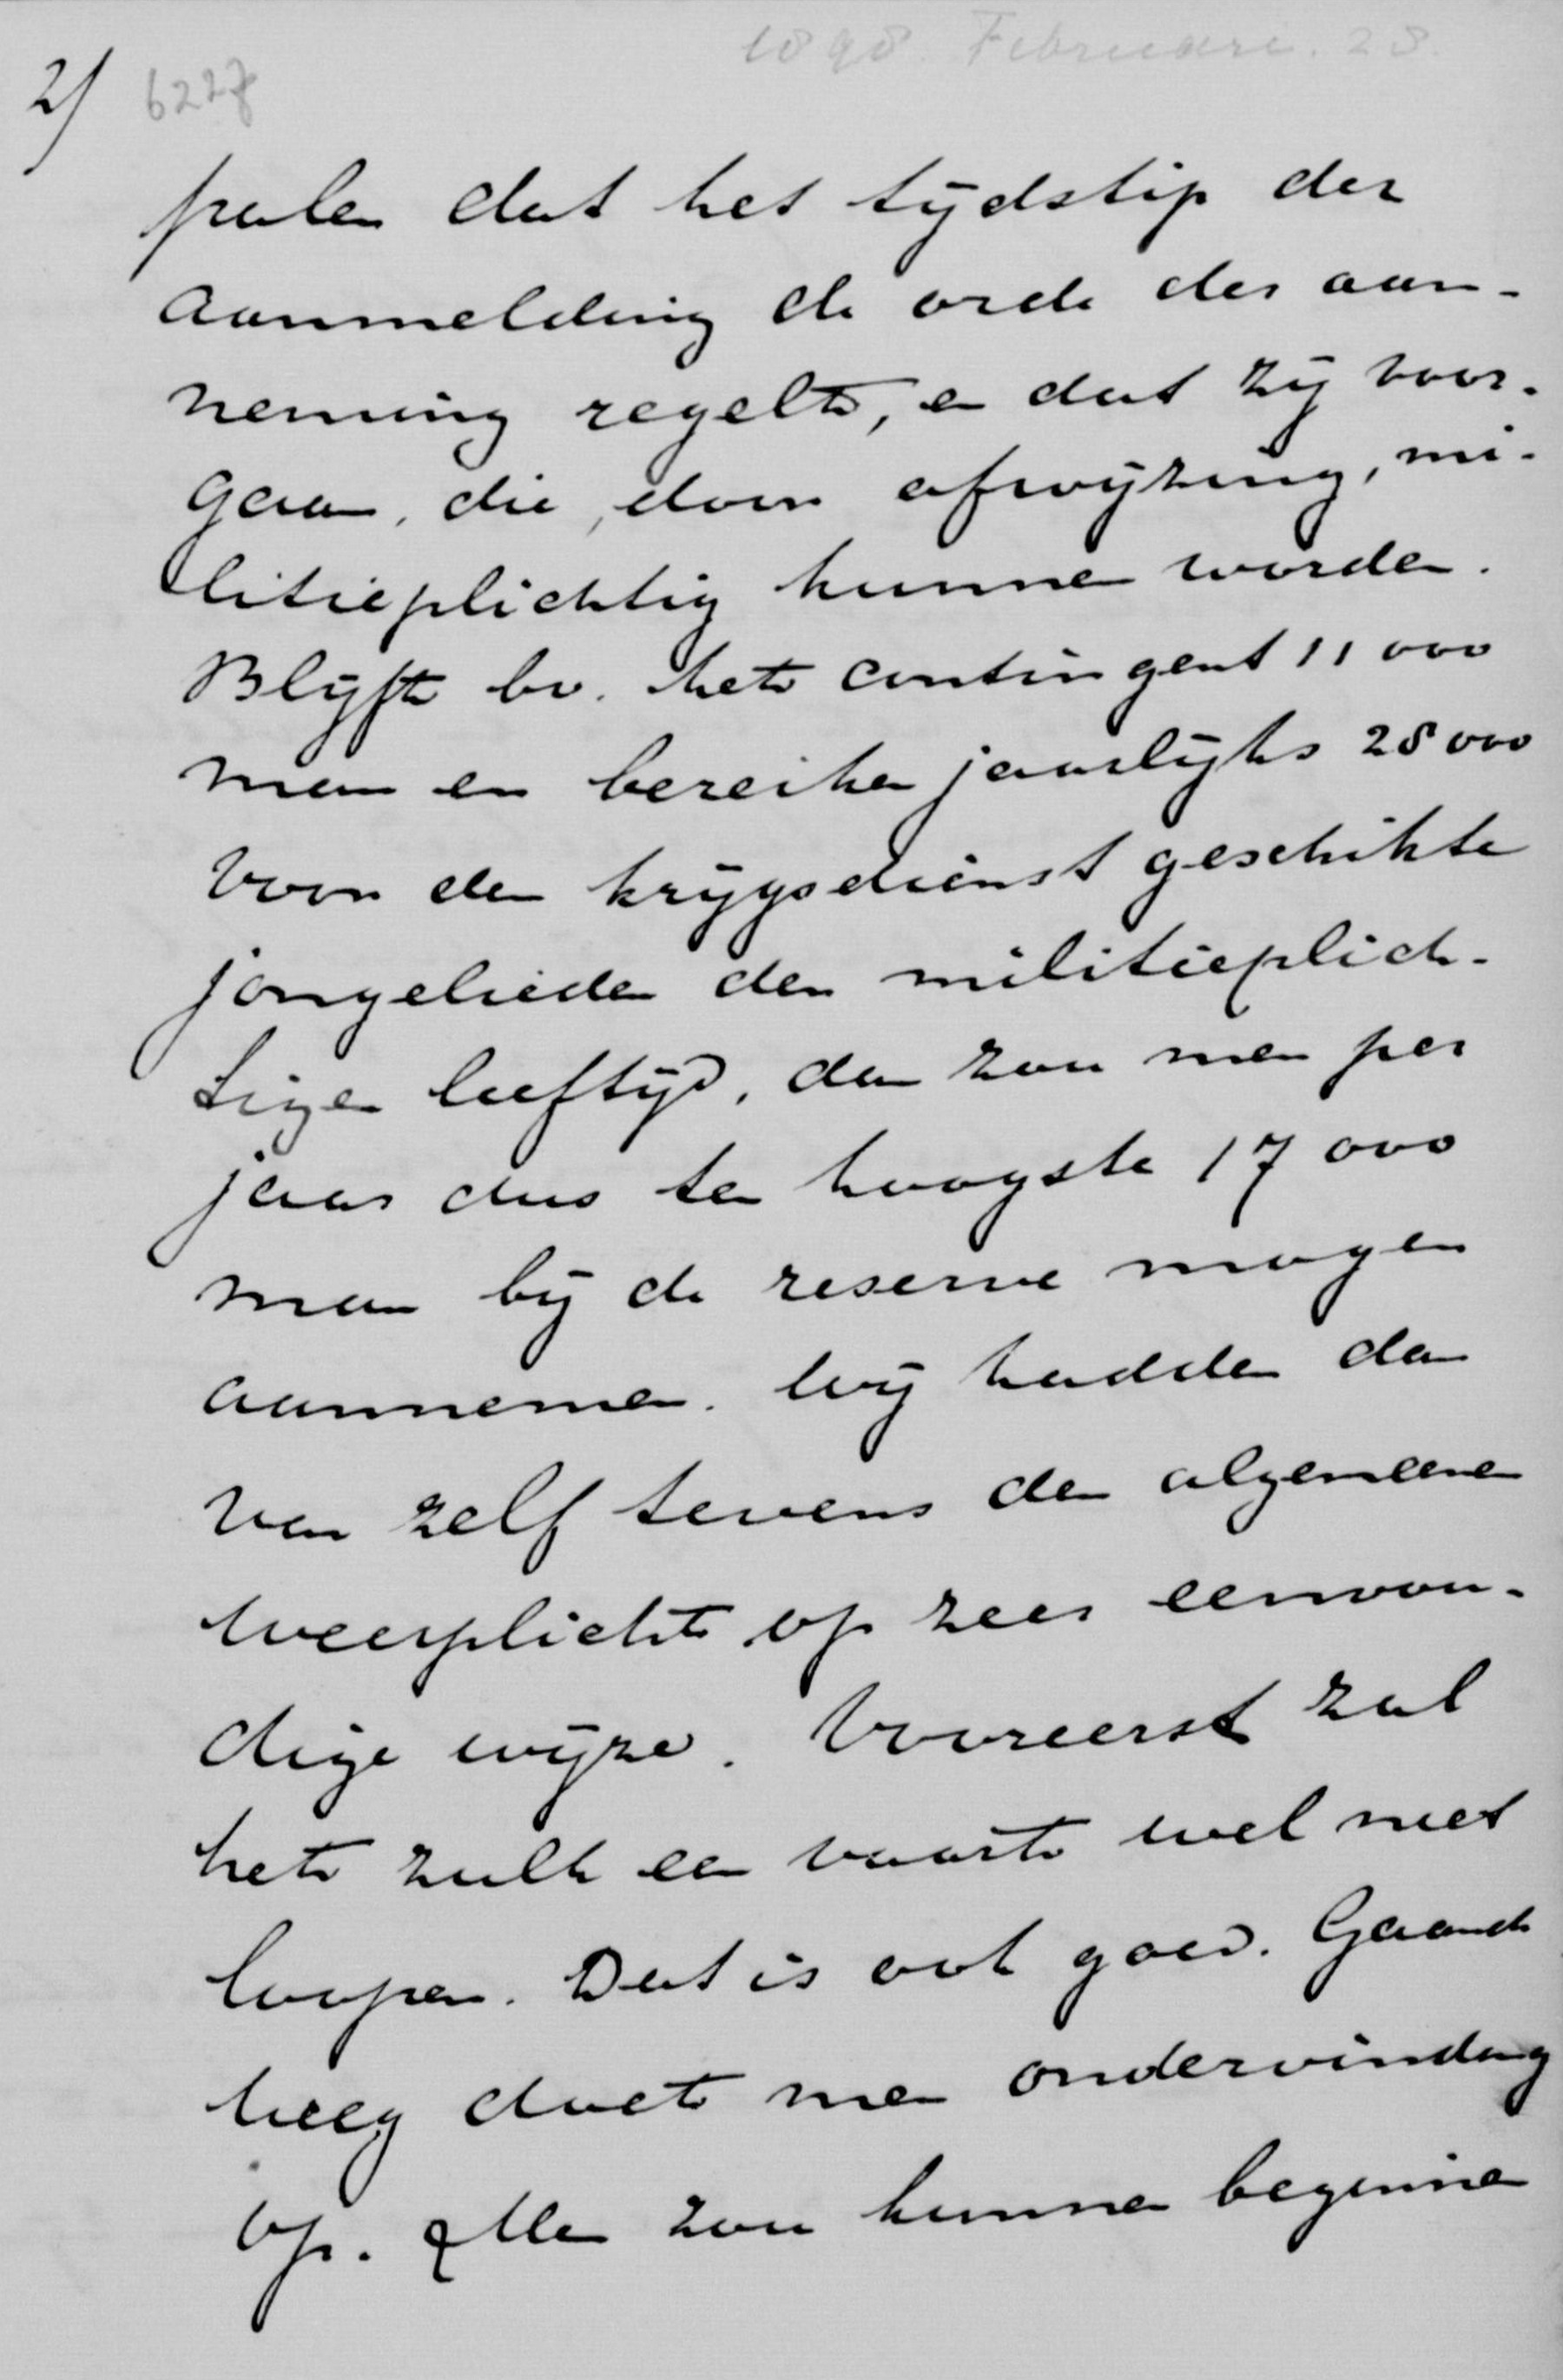 1898 Februari. 28.
2/ 6227
palen dat het tijdstip der
aanmelding de orde der aan-
neming regelt, en dat zij voor-
gaan, die, door afwijzing, mi-
litieplichtig kunnen worden.
Blijft bv. het contingent 11 000
man en bereiken jaarlijks 28 000
voor den krijgsdienst geschikte
jongelieden den militieplich-
tigen leeftijd, dan zou men per
jaar dus ten hoogste 17 000
man bij de reserve mogen
aannemen. Wij hadden dan
van zelf tevens den algemeenen
weerplicht op zeer eenvou-
dige wijze. Vooreerst zal
het zulk een vaart wel niet
loopen. Dat is ook goed. Gaande
weeg doet men ondervinding
op. Men zou kunnen beginnen